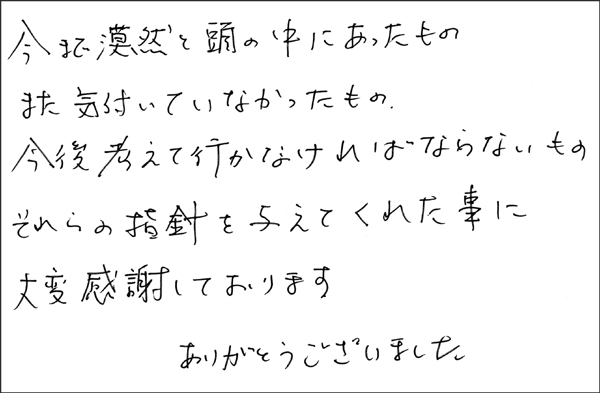 今まで漠然と頭の中にあったもの
また気付いていなかったもの.
今後考えて行かなければならないもの
それらの指針を与えてくれた事に
大変感謝しております
ありがとうございました